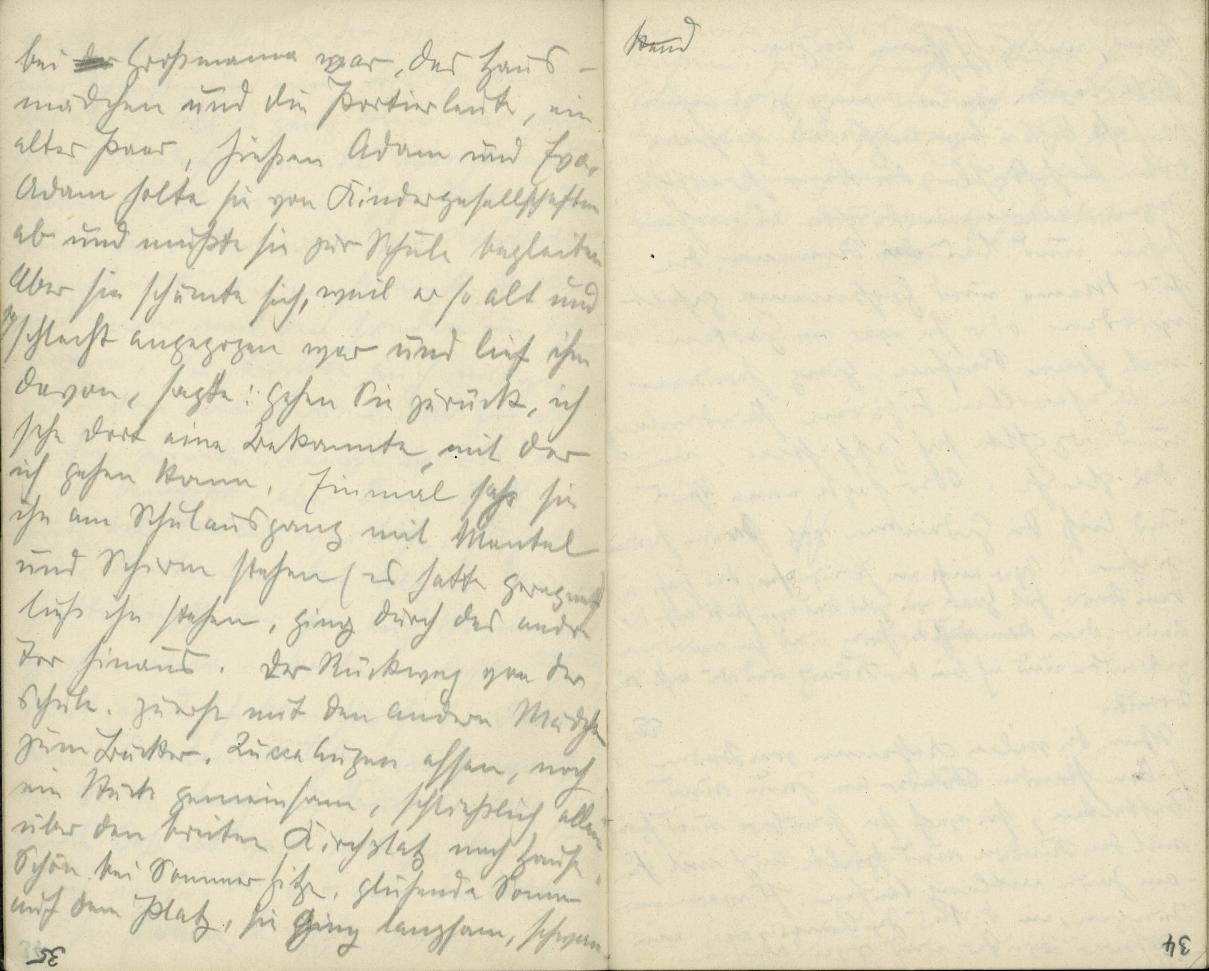 bei der Großmama war, das Haus-
mädchen und die Portierleute, ein
altes Paar, hießen Adam und Eva.
Adam holte sie von Kindergesellschaften
ab und mußte sie zur Schule begleiten
Aber sie schämte sich, weil er so alt und
schlecht angezogen war und lief ihm
davon, sagte: gehen Sie zurück, ich
sehe dort eine Bekannte, mit der
ich gehen kann. Einmal sah sie
ihn am Schulausgang mit Mantel
und Schirm stehen (es hatte geregnet)
ließ ihn stehen, ging durch das andre
Tor hinaus. Der Rückweg von der
Schule. zuerst mit den andern Mädchen
zum Bäcker. essen, noch
ein Stück gemeinsam, schließlich allein
über den breiten Kirchplatz nach Hause.
Schön bei Sommerhitze, glühende Sonne
auf dem Platz, sie ging langsam, schwan
35
kend
34